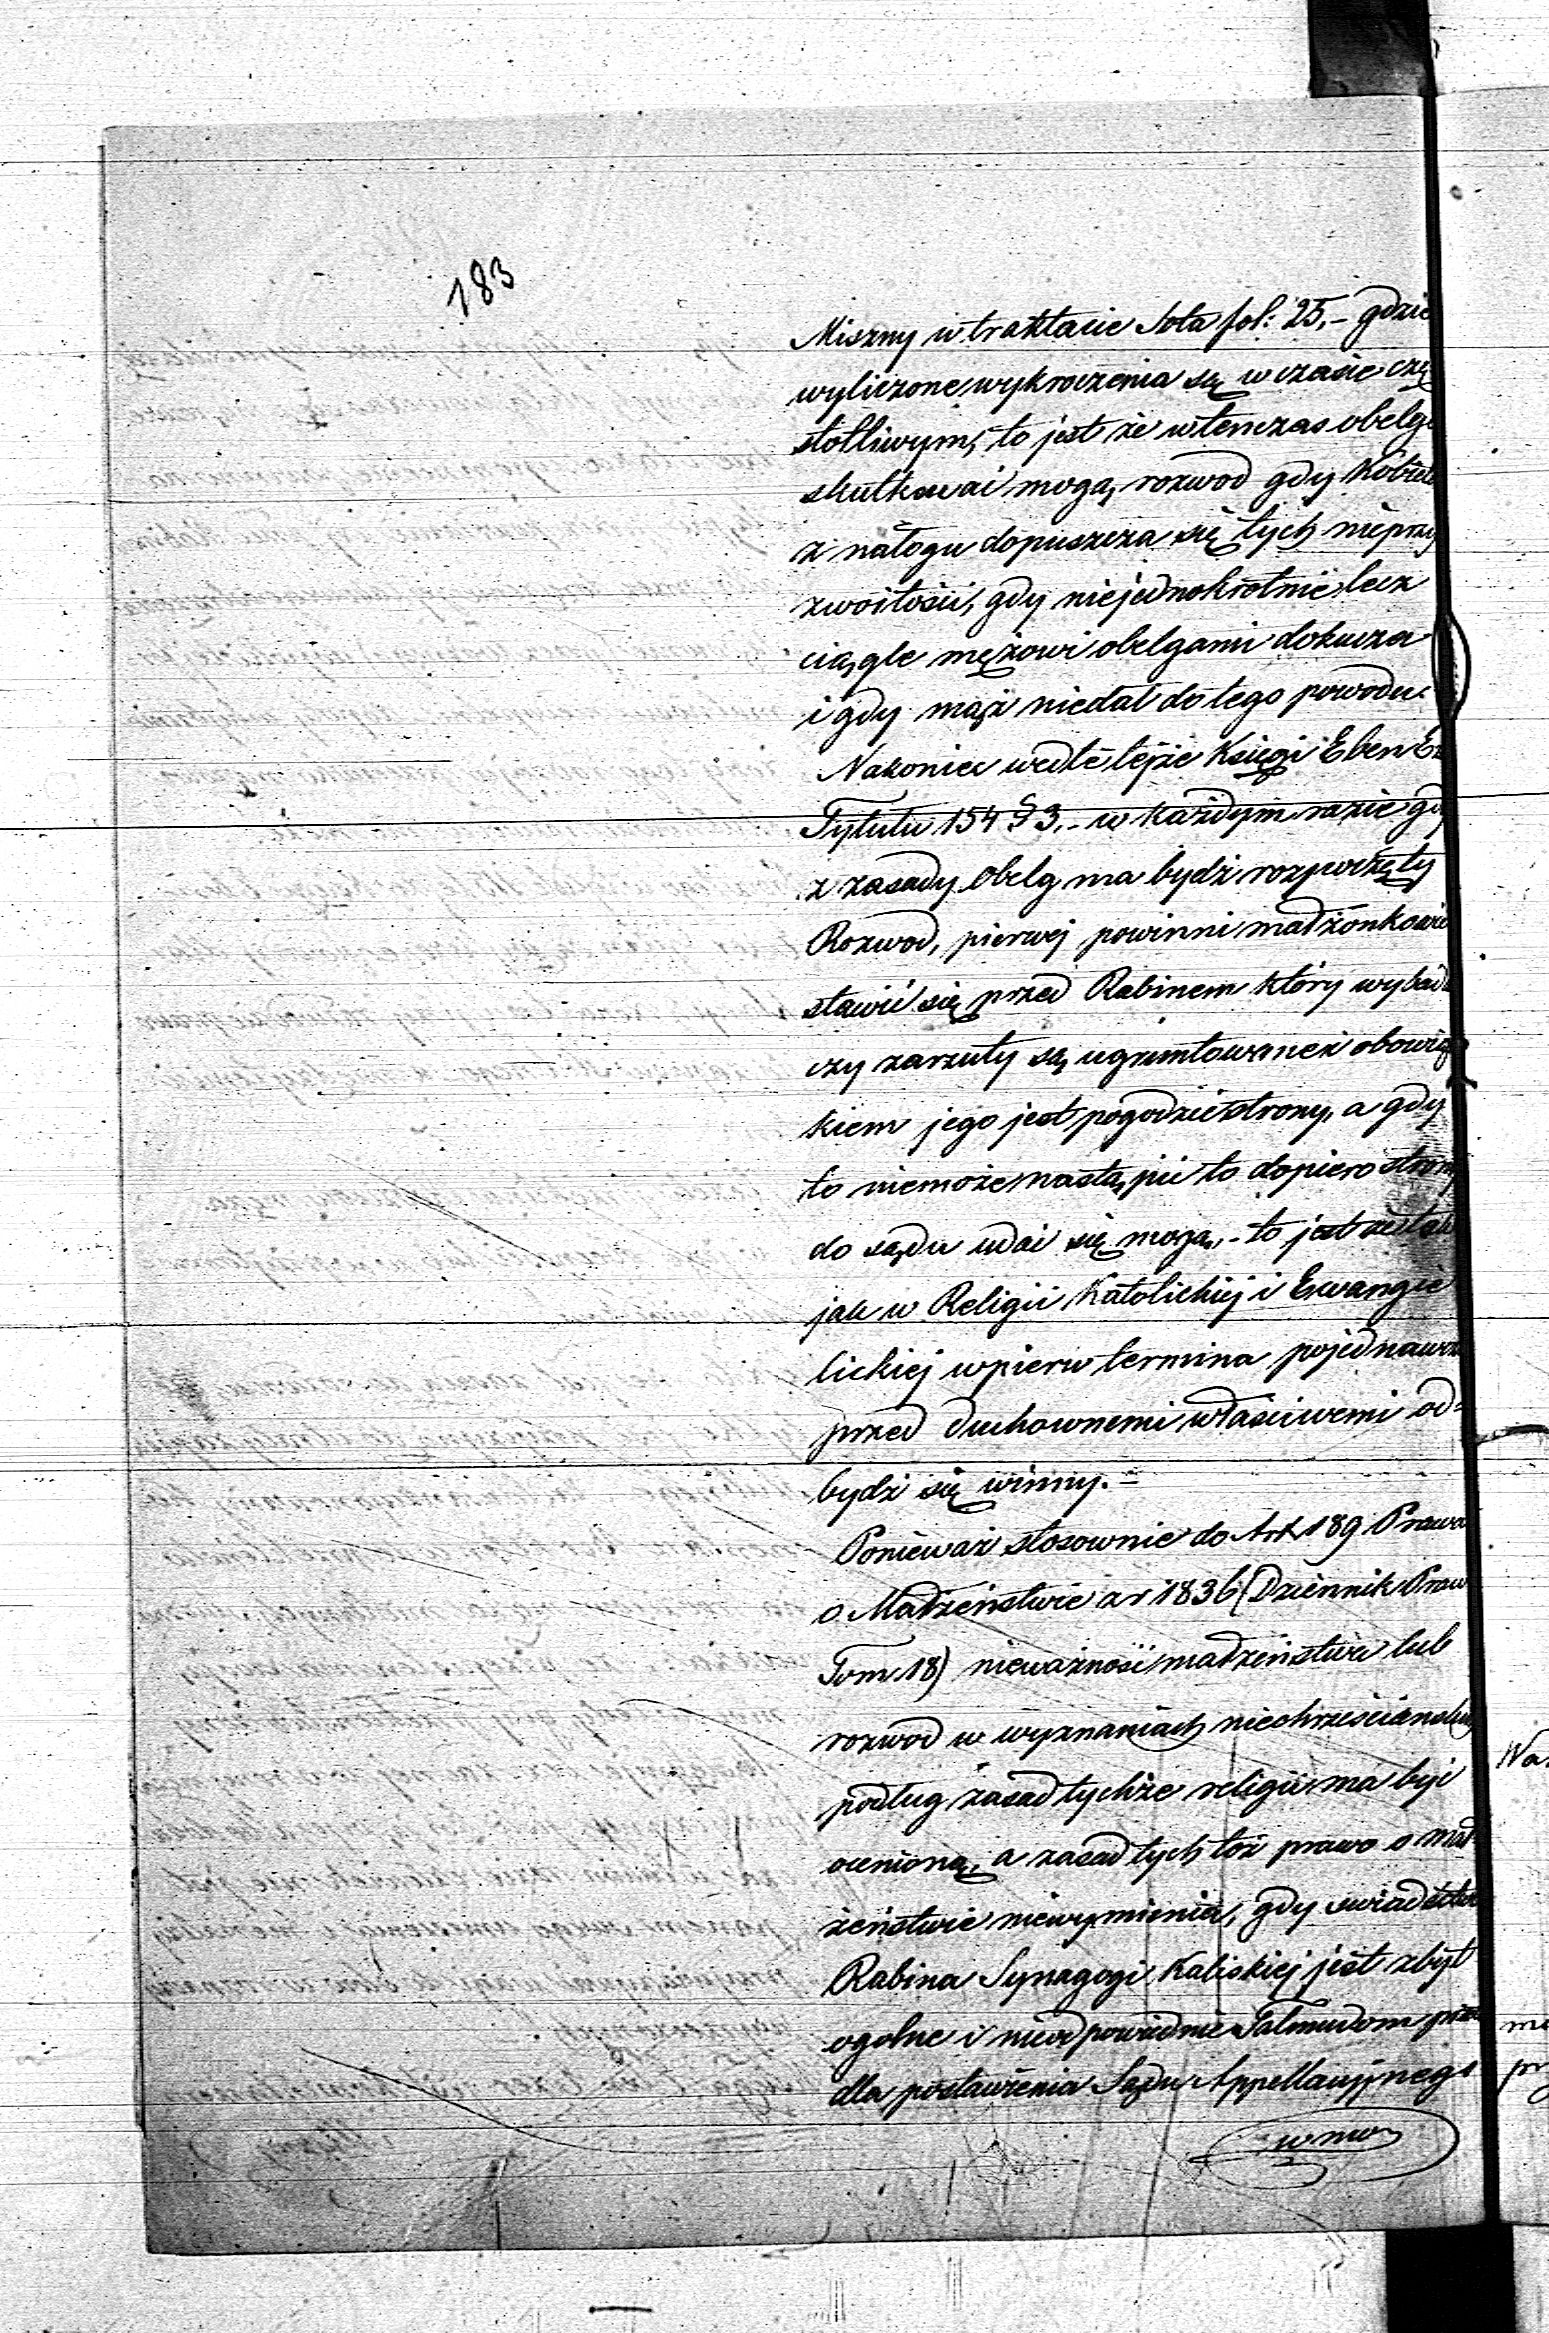 183
Miszny w traktacie Sota fol: 25,- gdzie
wyliczone wykroczenia są w czasie czę
stotliwym, to jest że wtenczas obelgi
skutkować mogą rozwod gdy Kobieta
z nałogu dopuszcza się tych nieprzy
zwoitości, gdy niejednokrotnie lecz
ciągle mężowi obelgami dokucza
i gdy mąż niedał do tego powodu.
Nakoniec wedle tejże Księgi Eben Ez
Tytułu 154 § 3.- w każdym razie gdy
z zasady obelg ma bydź rozpoczęty
Rozwod, pierwej powinni małżonkowie
stawić się przed Rabinem który wybada
czy zarzuty są ugruntowane i obowiąz
kiem jego jest pogodzić strony, a gdy
to niemoże nastąpić to dopiero strony
do sądu udać się mogą,- to jest że tak
jak w Religii Katolickiej i Ewangie
lickiej wpierw termina pojednawcze
przed duchownemi właściwemi od=
bydź się winny.=
Ponieważ stosownie do Art 189 Prawa
o Małżeństwie z r 1836 (Dziennik Praw
Tom 18) nieważność małżeństwa lub
rozwod w wyznaniach niechrześcianskich
podług zasad tychże religii ma być
ocenioną, a zasad tych toż prawo o mał
żeństwie niewymienia, gdy swiadectwo
Rabina Synagogi Kaliskiej jest zbyt
ogolne i nieodpowiednie Talmudom
dla postawienia Sądu Appellacyjnego
w mo
Wa
pr